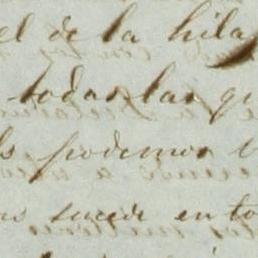 el de la hila
todas las qu
ls podemos v
ns sucede en to